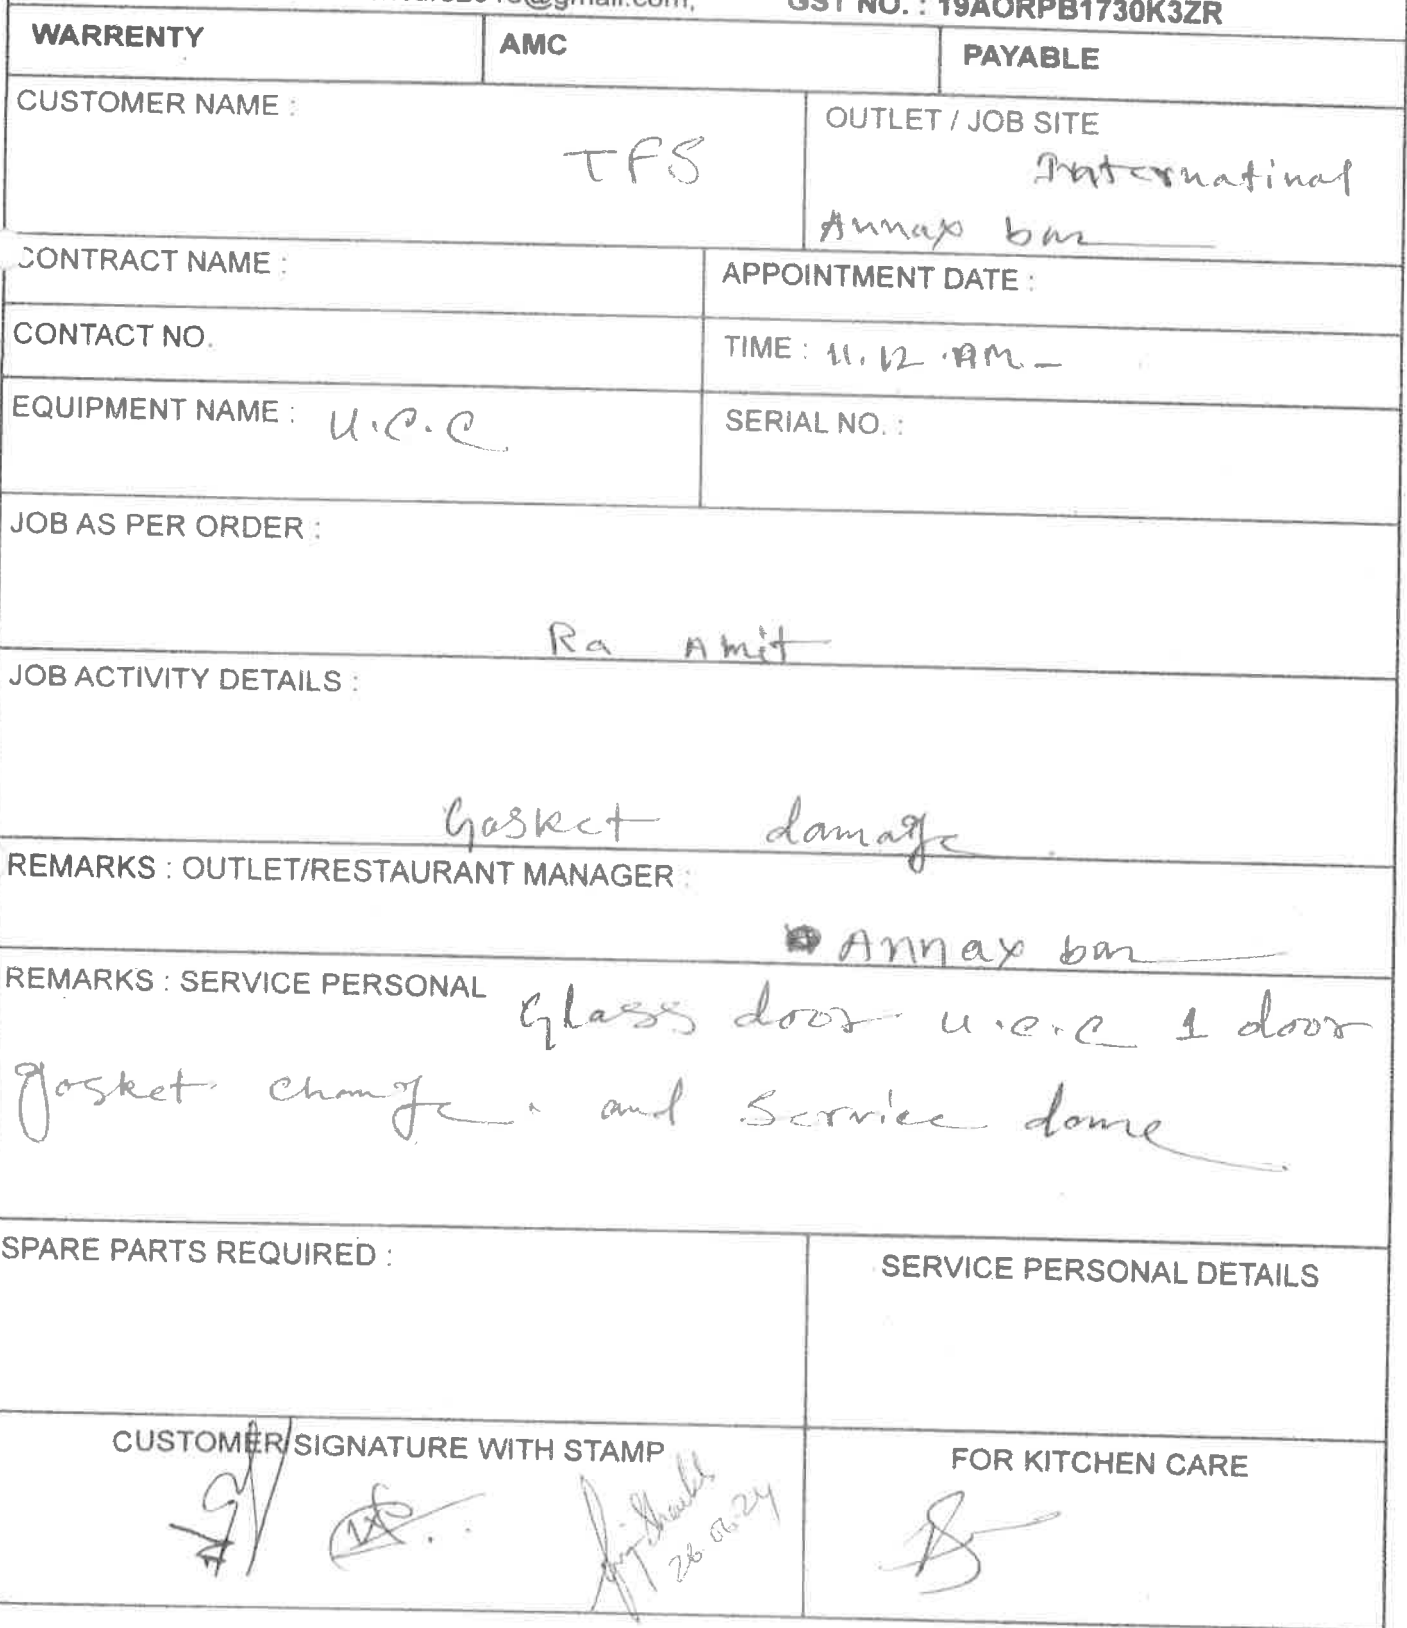 @gmail.com, GST NO. : 19AORPB1730K3ZR
WARRENTY AMC PAYABLE
CUSTOMER NAME : OUTLET / JOB SITE
TFS Internatinal
Annax bar
CONTRACT NAME : APPOINTMENT DATE :
CONTACT NO. TIME : 11.12 .AM.
EQUIPMENT NAME : U.C.C SERIAL NO. :
JOB AS PER ORDER :
Ra Amit
JOB ACTIVITY DETAILS :
Gasket damage
REMARKS : OUTLET/RESTAURANT MANAGER :
Annax bar
REMARKS : SERVICE PERSONAL Glass door u.c.c 1 door
gasket change. and Service done
SPARE PARTS REQUIRED : SERVICE PERSONAL DETAILS
CUSTOMER SIGNATURE WITH STAMP FOR KITCHEN CARE
26.06.24